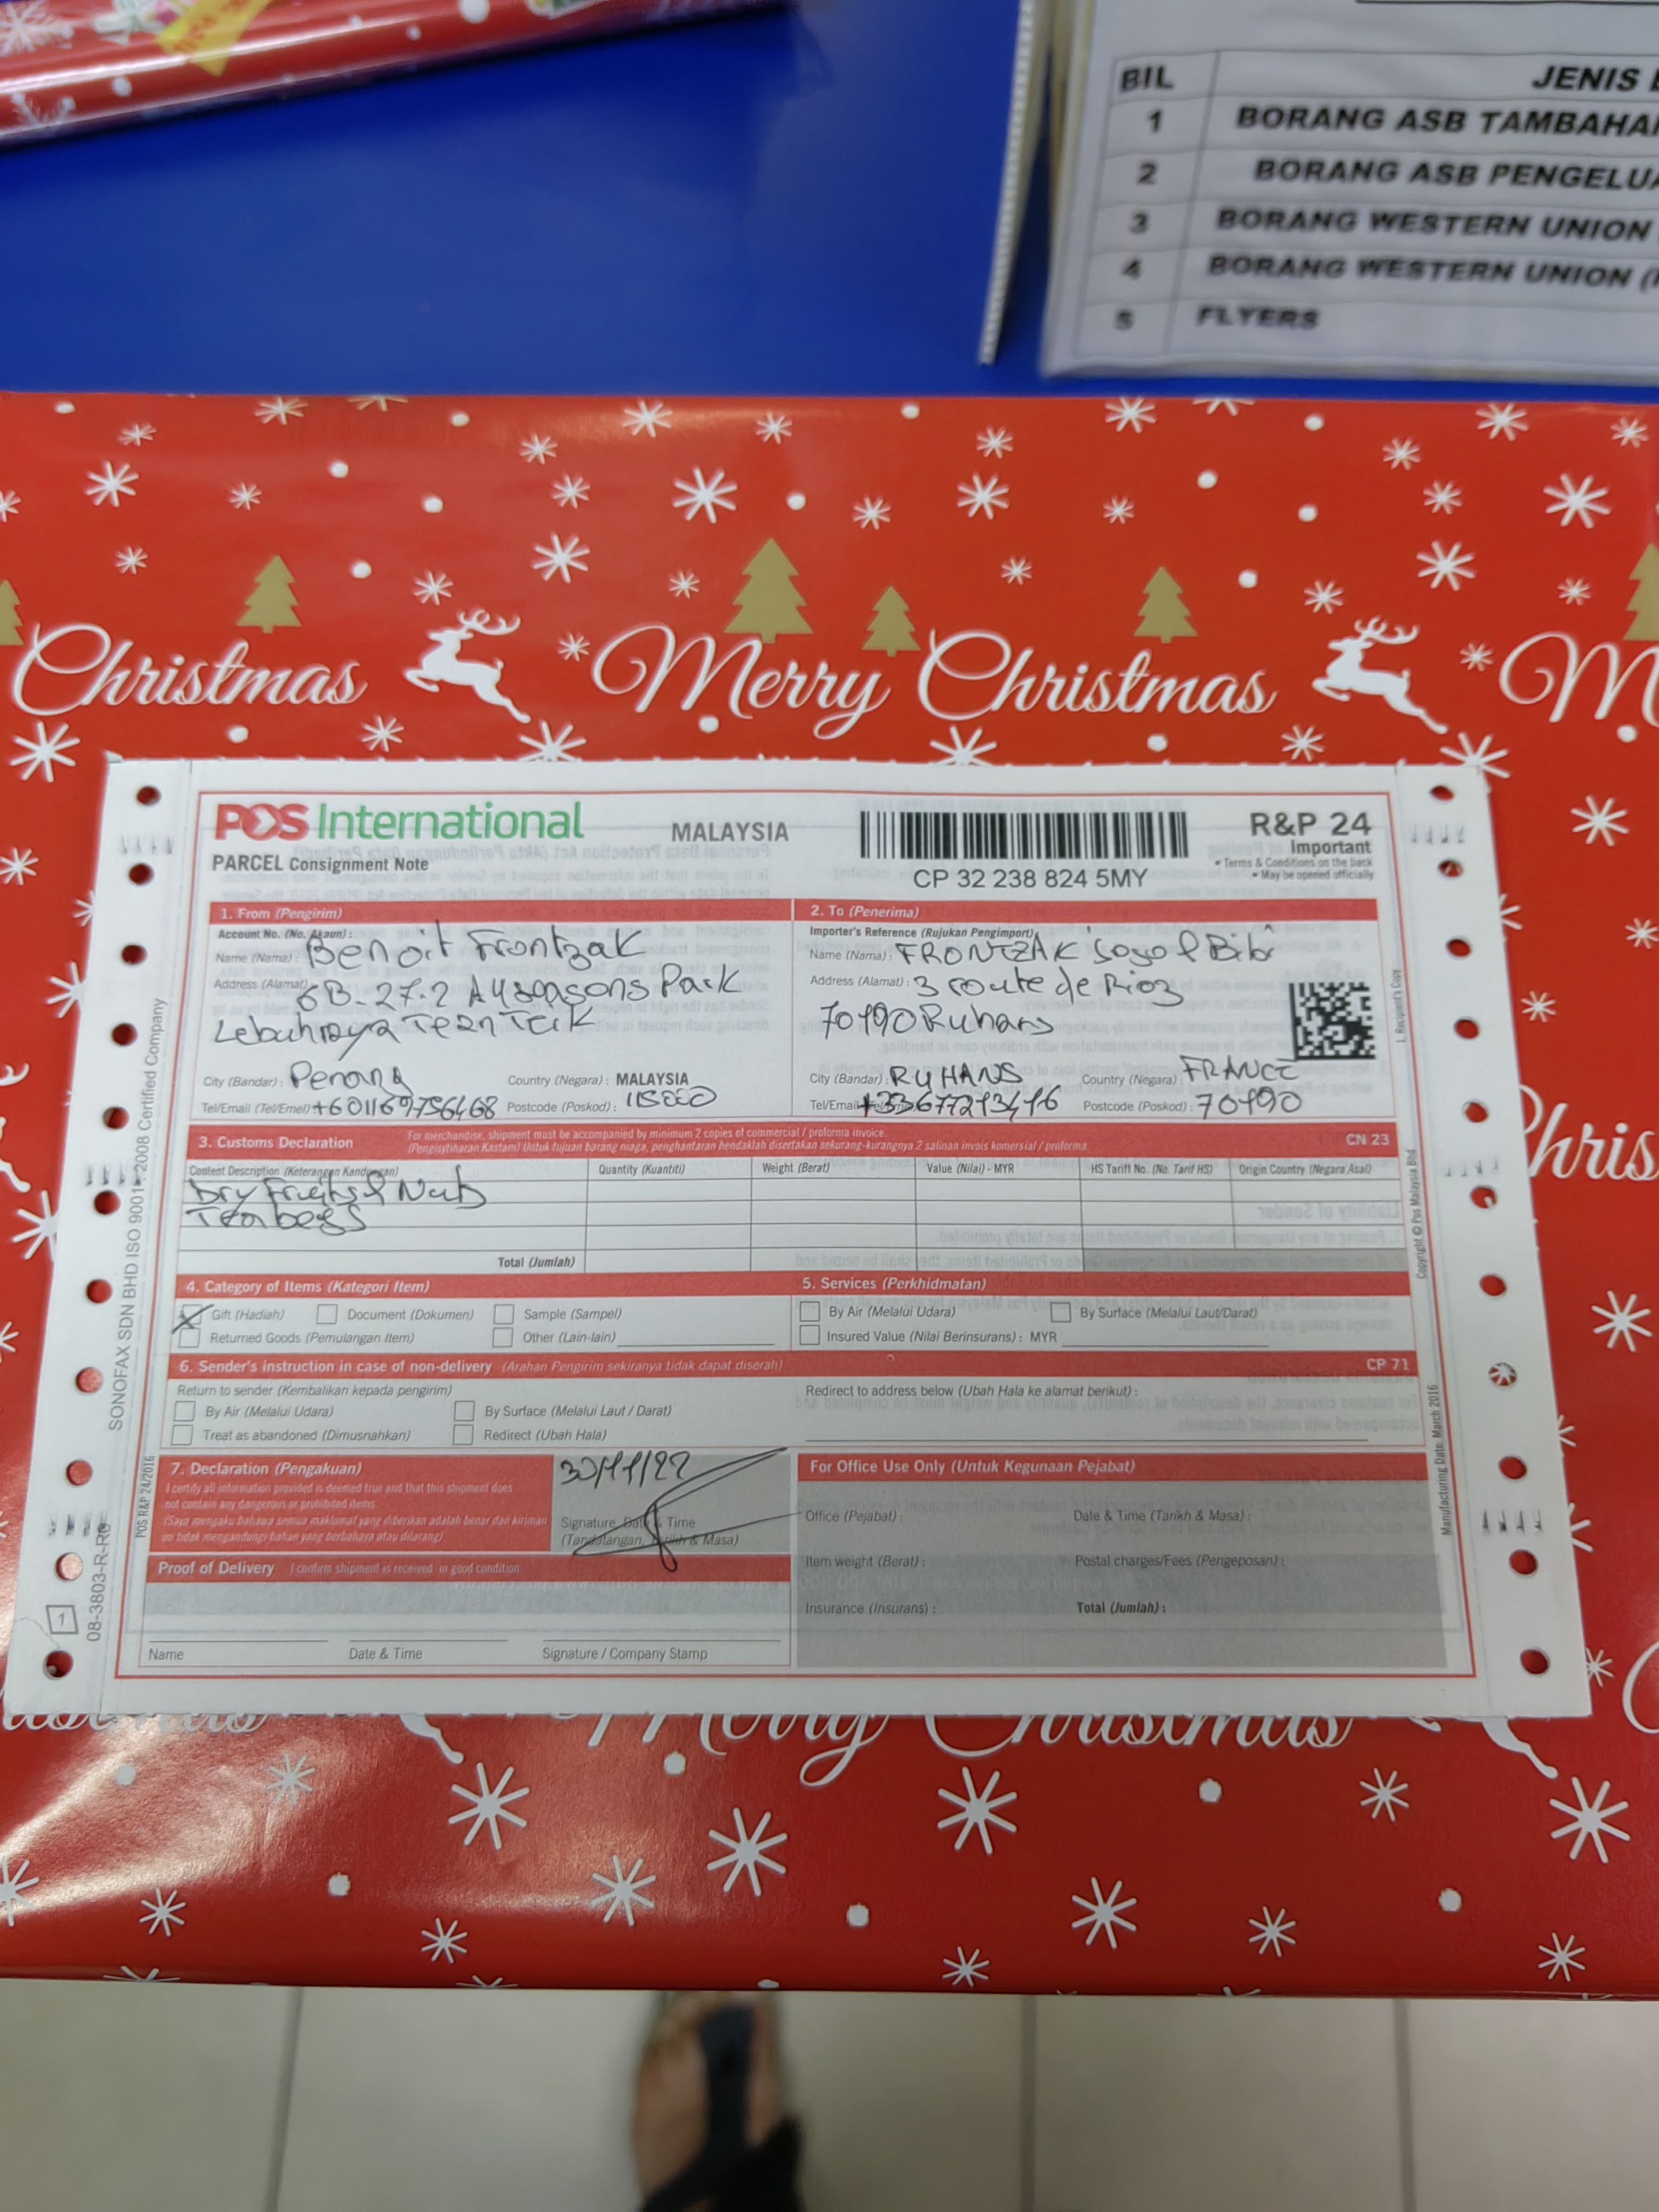 BIL JENIS
1 BORANG ASB TAMBAHA
2 BORANG ASB PENGELU
3 BORANG WESTERN UNION
4 BORANG WESTERN UNION (
5 FLYERS
Christmas Merry Christmas M
POS International MALAYSIA
R&P 24
Important
PARCEL Consignment Note
• Terms & Conditions on the back
• May be opened officially
CP 32 238 824 5MY
1. From (Pengirim)
Account No. (No. Akaun) :
Name (Nama) : Benoit Frontzak
Address (Alamat) 6B-27-2 A4seasons Park
Lebuhraya Tean Teik
City (Bandar) : Penang Country (Negara) : MALAYSIA
Tel/Email (Tel/Emel) Postcode (Poskod) :
2. To (Penerima)
Importer's Reference (Rujukan Pengimport)
Name (Nama) : FRONTZAK
Address (Alamat) : 3 route de Rioz
70190 Ruhans
City (Bandar) : RUHANS Country (Negara) : FRANCE
Tel/Email Postcode (Poskod) : 70190
3. Customs Declaration For merchandise, shipment must be accompanied by minimum 2 copies of commercial / proforma invoice. CN 23
(Pengisytiharan Kastam) Untuk tujuan barang niaga, penghantaran hendaklah disertakan sekurang-kurangnya 2 salinan invois komersial / proforma
Content Description (Keterangan Kandungan) Quantity (Kuantiti) Weight (Berat) Value (Nilai) - MYR HS Tariff No. (No. Tarif HS) Origin Country (Negara Asal)
Dry Fruits & Nuts
Teabags
Total (Jumlah)
4. Category of Items (Kategori Item)
Gift (Hadiah) Document (Dokumen) Sample (Sampel)
Returned Goods (Pemulangan Item) Other (Lain-lain)
5. Services (Perkhidmatan)
By Air (Melalui Udara) By Surface (Melalui Laut/Darat)
Insured Value (Nilai Berinsurans) : MYR
6. Sender's instruction in case of non-delivery (Arahan Pengirim sekiranya tidak dapat diserah) CP 71
Return to sender (Kembalikan kepada pengirim)
By Air (Melalui Udara) By Surface (Melalui Laut / Darat)
Treat as abandoned (Dimusnahkan) Redirect (Ubah Hala)
Redirect to address below (Ubah Hala ke alamat berikut) :
7. Declaration (Pengakuan)
I certify all information provided is deemed true and that this shipment does
not contain any dangerous or prohibited items.
(Saya mengaku bahawa semua maklumat yang diberikan adalah benar dan kiriman
ini tidak mengandungi bahan yang berbahaya atau dilarang)
30/11/22
Signature, Date & Time
(Tandatangan, Tarikh & Masa)
Proof of Delivery I confirm shipment is received in good condition.
Name Date & Time Signature / Company Stamp
For Office Use Only (Untuk Kegunaan Pejabat)
Office (Pejabat) : Date & Time (Tarikh & Masa) :
Item weight (Berat) : Postal charges/Fees (Pengeposan) :
Insurance (Insurans) : Total (Jumlah) :
SONOFAX SDN BHD ISO 9001:2008 Certified Company
POS R&P 24/2016
08-3803-R-R6
1
1. Recipient's Copy
Copyright © Pos Malaysia Bhd
Manufacturing Date: March 2016
Chris
Merry Christmas